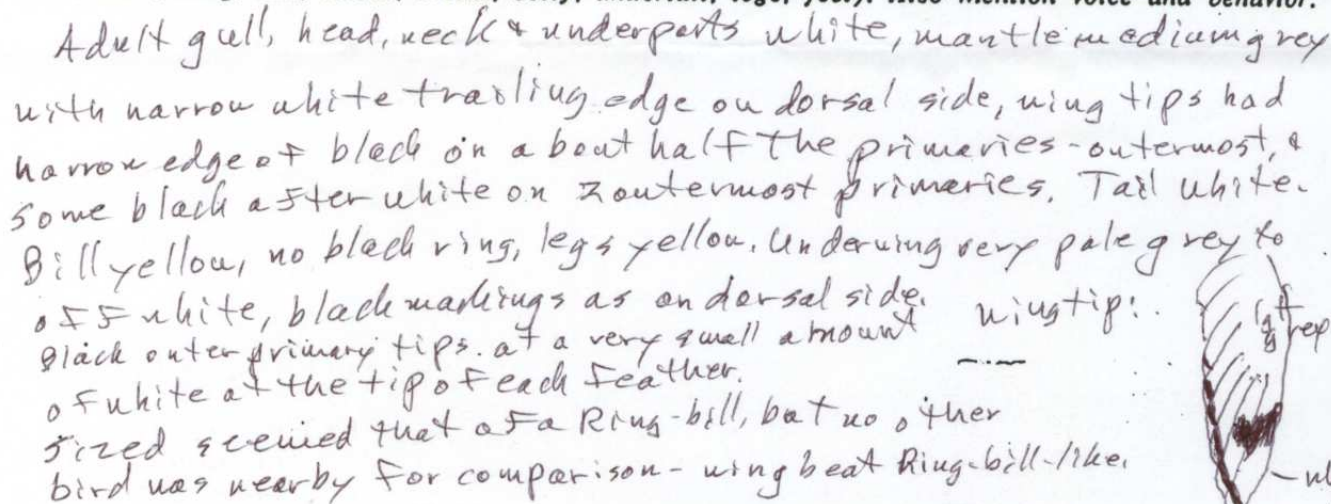 also mention voice and behavior.
Adult gull, head, neck & underparts white, mantle medium grey
with narrow white trailing edge on dorsal side, wing tips had
narrow edge of black on about half the primaries - outermost, &
some black after white on 2 outermost primaries. Tail white.
Bill yellow, no black ring, legs yellow. Underwing very pale grey to
off white, black markings as on dorsal side. wing tip:
Black outer primary tips. at a very small amount
of white at the tip of each feather.
Sized seemed that of a Ring-bill, but no other
bird was nearby for comparison - wing beat Ring-bill-like.